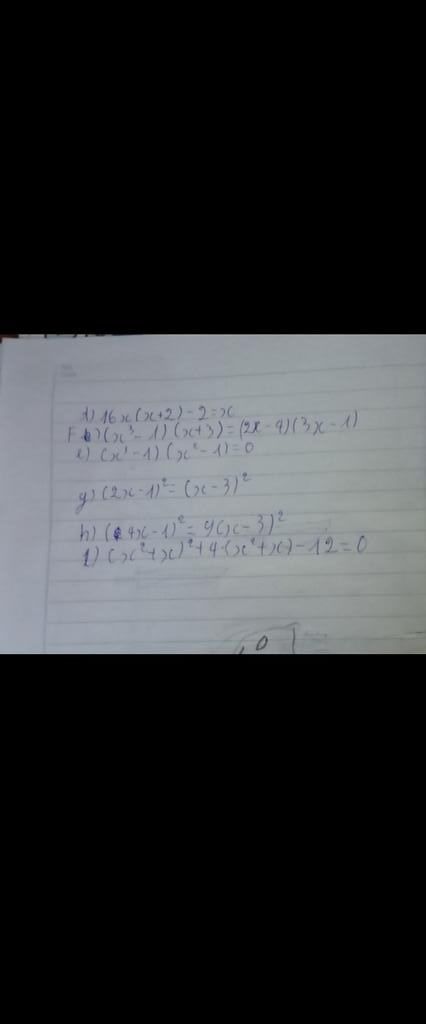 d) 16x(x+2)-2=x
F b) (x³-1)(x+3)=(2x-4)(3x-1)
e) (x¹-1)(x²-1)=0
g) (2x-1)²=(x-3)²
h) (4x-1)²=9(x-3)²
i) (x²+x)²+4(x²+x)-12=0